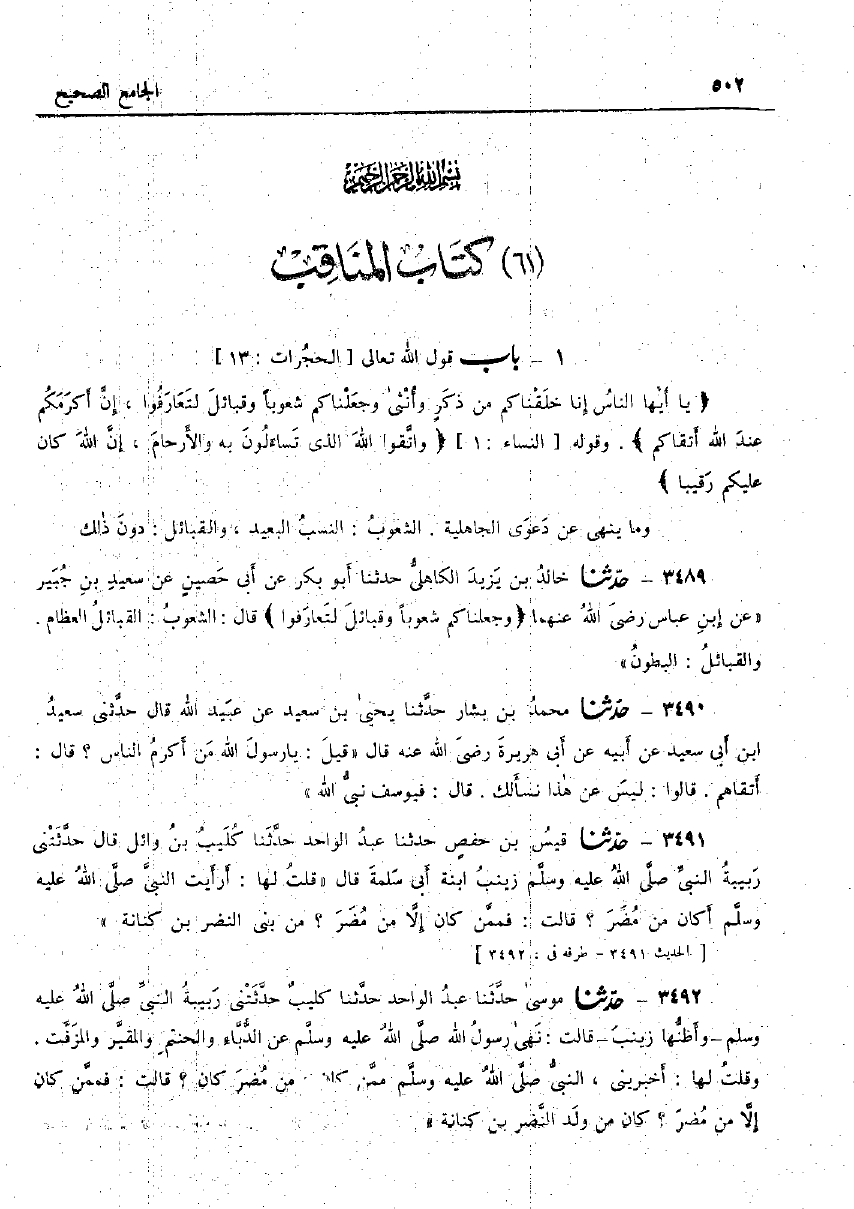 ٥٠٢ الجامع الصحيح
بسم الله الرحمن الرحيم
(٦١) كتَاب المنَاقِب
١ – باب قول الله تعالى [ الحجُرات : ١٣ ]
﴿ يا أيها الناسُ إنا خلَقْناكم من ذكَرٍ وأُنْثىٰ وجعلْناكم شعوباً وقبائلَ لتَعارَفُوا ، إنَّ أكرَمَكُم
عندَ الله أتقاكم ﴾ . وقوله [ النساء : ١ ] ﴿ واتَّقوا اللهَ الذى تَساءلُونَ به والأرحامَ ، إنَّ اللهَ كان
عليكم رَقيبا ﴾
وما ينهى عن دَعوَى الجاهلية . الشعوبُ : النسبُ البعيد ، والقبائل : دونَ ذٰلك
٣٤٨٩ – حدّثنا خالدُ بن يَزيدَ الكَاهليُّ حدثنا أبو بكر عن أبى حَصينٍ عن سعيدِ بنِ جُبَير
«عن إبنِ عباس رضىَ اللهُ عنهما ﴿ وجعلناكم شعوباً وقبائلَ لتعارَفوا ﴾ قال : الشعوبُ : القبائلُ العظام .
والقبائلُ : البطونُ»
٣٤٩٠ – حدّثنا محمدُ بن بشار حدَّثنا يحيىٰ بن سعيد عن عبَيد الله قال حدَّثنى سعيدُ
ابن أبي سعيد عن أبيه عن أبي هريرةَ رضىَ الله عنه قال «قيلَ : يارسولَ الله مَن أكرمُ الناس ؟ قال :
أتقاهم . قالوا : ليسَ عن هٰذا نسألك . قال : فيوسف نبيُّ الله »
٣٤٩١ – حدّثنا قيسُ بن حفصٍ حدثنا عبدُ الواحد حدَّثَنا كُلَيبُ بنُ وائل قال حدَّثَتْنى
رَبيبةُ النبيِّ صلَّى اللهُ عليه وسلَّم زينبُ ابنة أبى سَلمةَ قال «قلتُ لها : أرأيت النبيَّ صلَّى اللهُ عليه
وسلَّم أكان من مُضَرَ ؟ قالت : فممَّن كان إلَّا من مُضَرَ ؟ من بنى النضر بن كنانة »
[ الحديث ٣٤٩١ – طرفه فى : ٣٤٩٢ ]
٣٤٩٢ – حدّثنا موسىٰ حدَّثَنا عبدُ الواحد حدَّثنا كليبٌ حدَّثَتْنى رَبيبةُ النبيِّ صلَّى اللهُ عليه
وسلم –وأظنُّها زينبَ– قالت : نَهىٰ رسولُ الله صلَّى اللهُ عليه وسلَّم عن الدُّبَّاء والحنتمِ والمقيَّر والمزَفَّت .
وقلتُ لها : أخبرينى ، النبيُّ صلَّى اللهُ عليه وسلَّم ممَّن كان من مُضرَ كان ؟ قالت : فممَّن كان
إلَّا من مُضرَ ؟ كان من ولَد النَّضر بن كنانة »